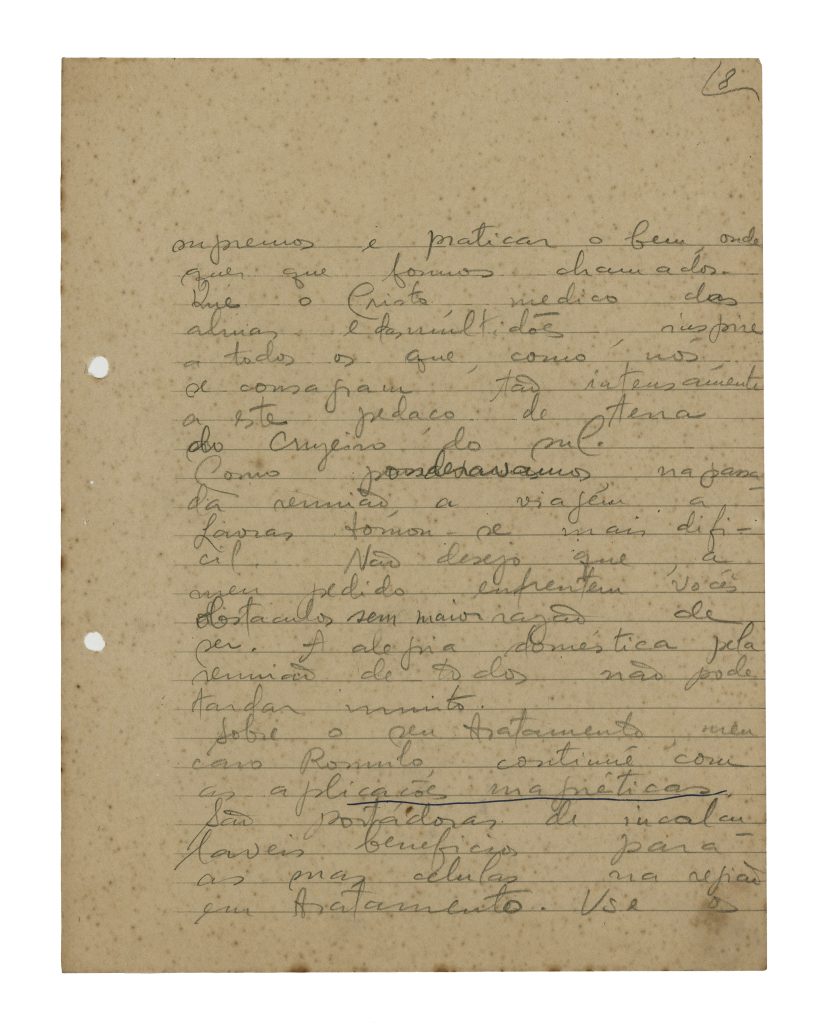 8
supremos e praticar o bem, onde
quer que formos chamados.
Que o Cristo, medico das
almas e das multidões, inspire
a todos os que, como nós,
se consagram tão intensamente
a este pedaco de terra
do Cruzeiro do sul.
Como ponderavamos, na passa-
da reunião a viagem a
Lavras tornou-se mais difi-
cil. Não desejo que, a
meu pedido enfrentem vocês
obstaculos sem maior razão de
ser. A alegria doméstica pela
reunião de todos não pode
tardar muito.
Sobre o seu tratamento, meu
caro Romulo, continue com
as aplicações magnéticas.
São portadoras de incalcu-
laveis beneficios para
as suas celulas na região
em tratamento. Use os